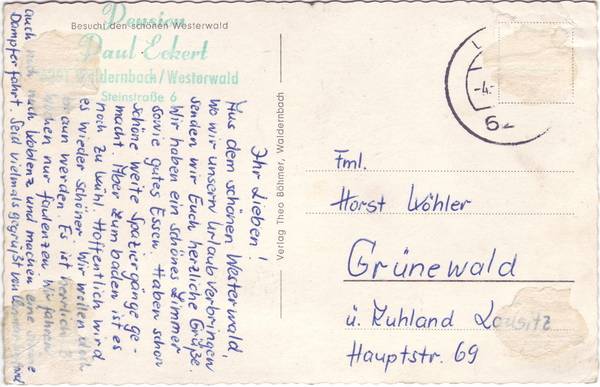 Besucht den schönen Westerwald
Pension
Paul Eckert
Waldernbach/Westerwald
Steinstraße 6
Ihr Lieben!
Aus dem schönen Westerwald,
wo wir unsern Urlaub verbringen
senden wir Euch herzliche Grüße.
Wir haben ein schönes Zimmer
sowie gutes Essen. Haben schon
schöne weite Spaziergänge ge-
macht. Aber zum baden ist es
noch zu kühl. Hoffentlich wird
es wieder schöner. Wir wollen doch
braun werden. Es ist herrlich
nur faulenzen. Wir fahren
auch noch nach Koblenz und machen eine
Dampferfahrt. Seid vielmals gegrüßt von
Verlag Theo Böhmer, Waldernbach
-4.
52
Fml.
Horst Wöhler
Grünewald
ü. Ruhland Lausitz
Hauptstr. 69